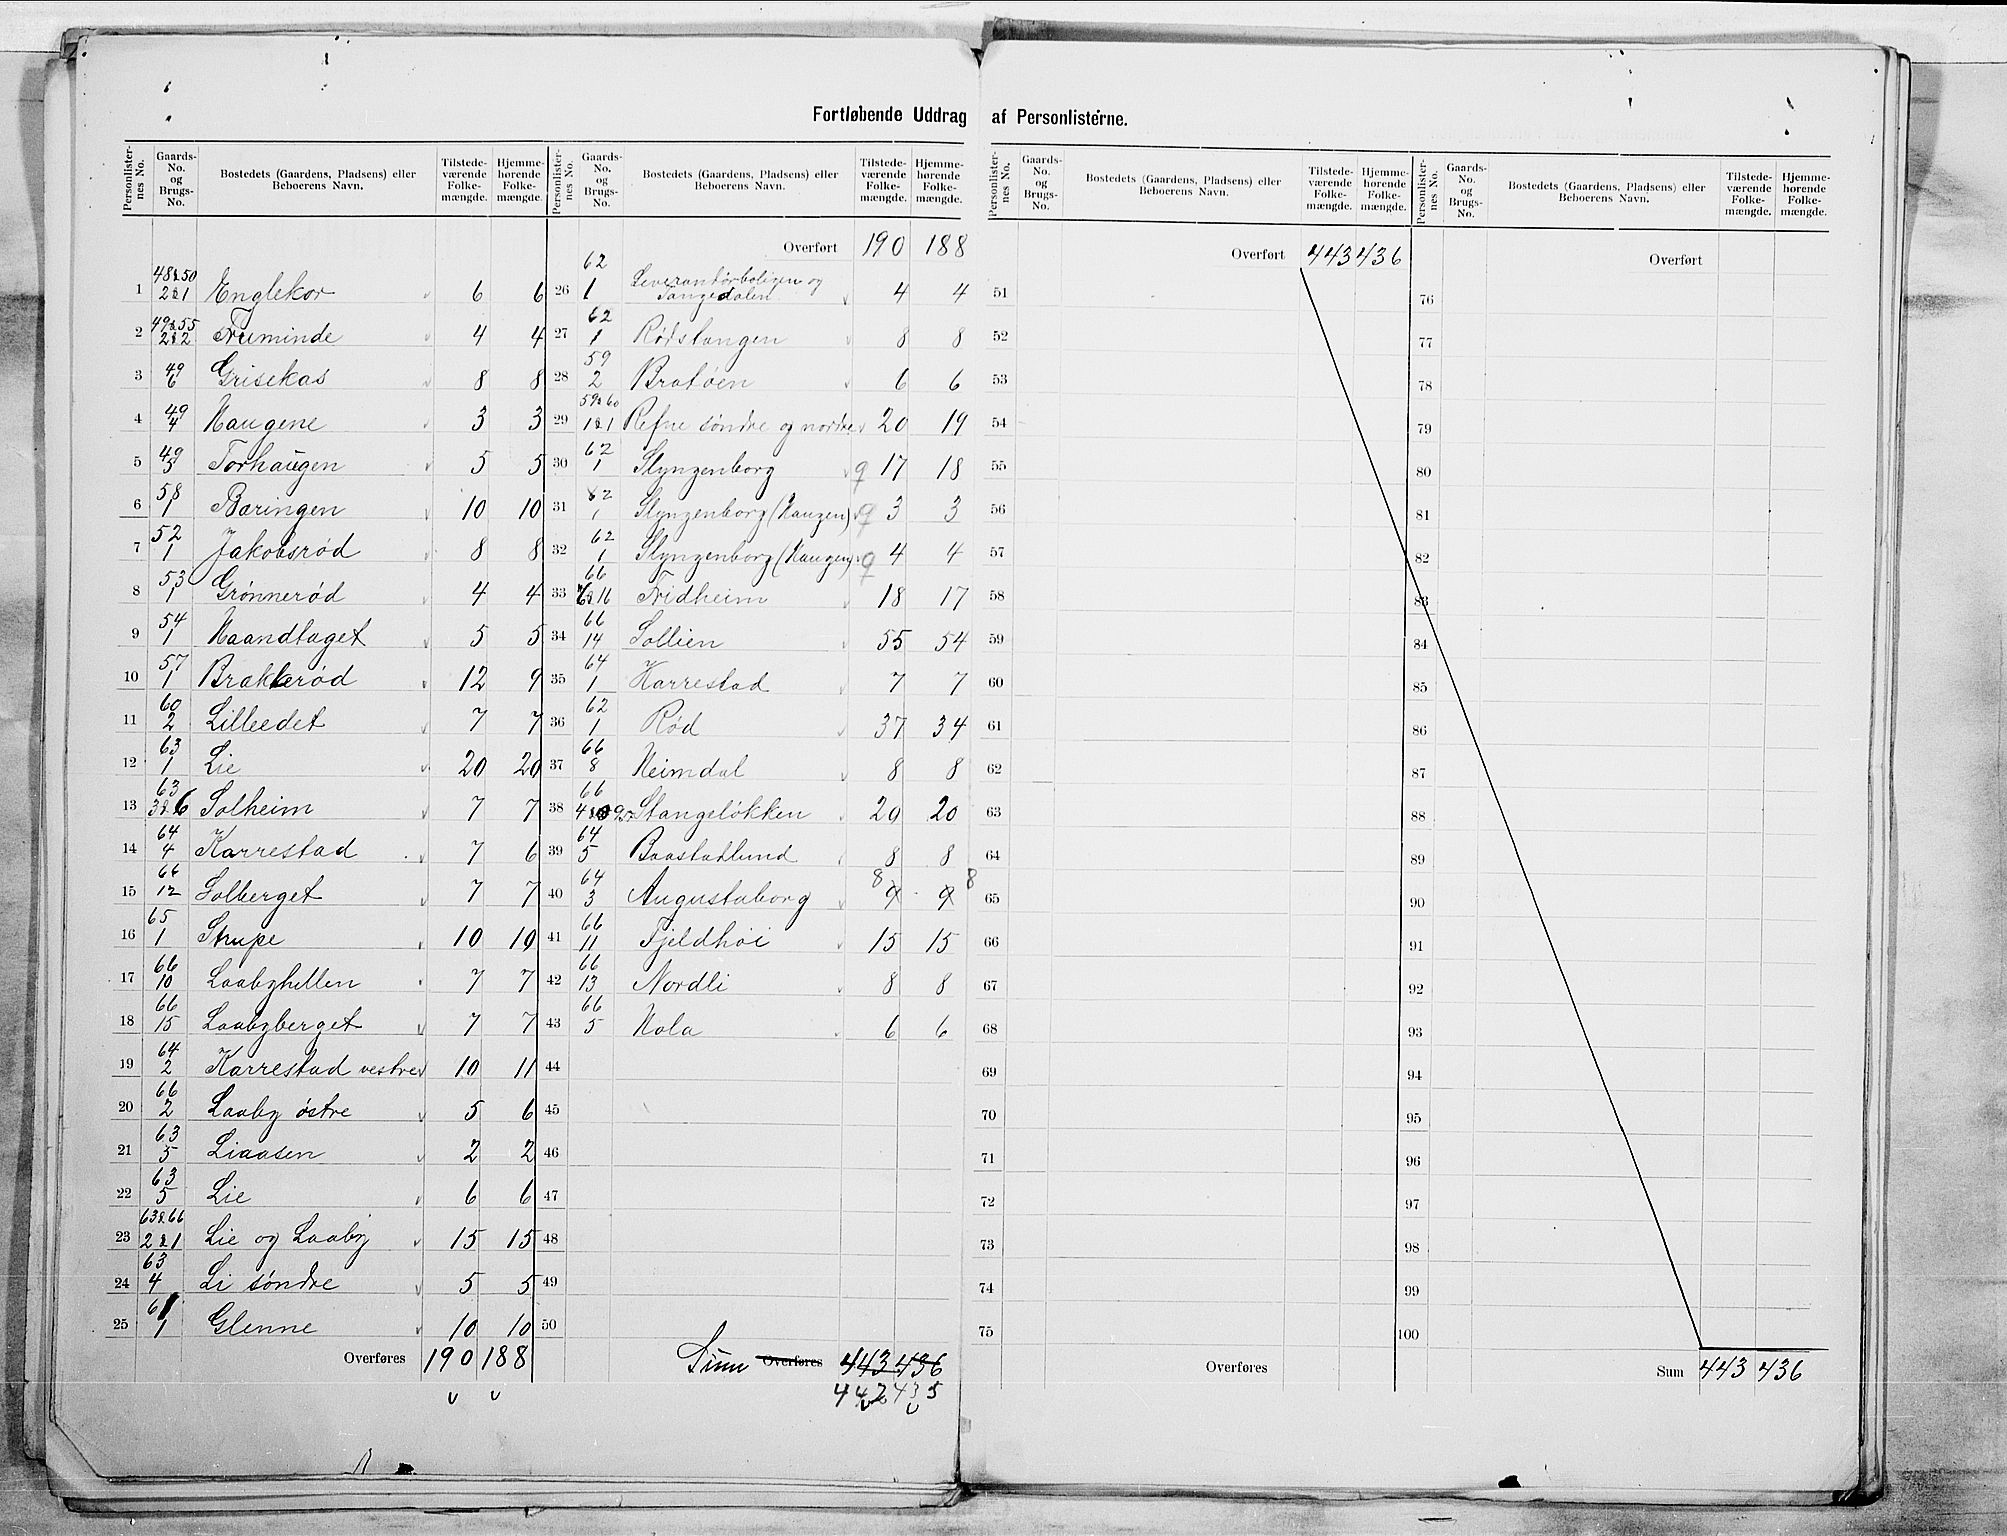 Fortløbende Uddrag af Personlisterne.
Personlisternes No. | Gaards-No. og Brugs-No. | Bostedets (Gaardens, Pladsens) eller Beboerens Navn. | Tilstedeværende Folkemængde. | Hjemmehørende Folkemængde.
1 | 48&50 2&1 | Englekor | 6 | 6
2 | 49&55 2&2 | Fruminde | 4 | 4
3 | 49 6 | Grisekas | 8 | 8
4 | 49 4 | Haugene | 3 | 3
5 | 49 5 | Torhaugen | 5 | 5
6 | 58 1 | Baringen | 10 | 10
7 | 52 1 | Jakobsrød | 8 | 8
8 | 53 1 | Grønnerød | 4 | 4
9 | 54 1 | Haandtaget | 5 | 5
10 | 57 1 | Braklerød | 12 | 9
11 | 60 2 | Lilleedet | 7 | 7
12 | 63 1 | Lie | 20 | 20
13 | 63 3&6 | Solheim | 7 | 7
14 | 64 4 | Karrestad | 7 | 6
15 | 66 12 | Solberget | 7 | 7
16 | 65 1 | Strupe | 10 | 10
17 | 66 10 | Laabyhellen | 7 | 7
18 | 66 15 | Laabyberget | 7 | 7
19 | 64 2 | Karrestad vestre | 10 | 11
20 | 66 2 | Laaby østre | 5 | 6
21 | 63 5 | Liaasen | 2 | 2
22 | 63 5 | Lie | 6 | 6
23 | 63&66 2&1 | Lie og Laaby | 15 | 15
24 | 63 4 | Li søndre | 5 | 5
25 | 61 1 | Glenne | 10 | 10
Overføres 190 188
Personlisternes No. | Gaards-No. og Brugs-No. | Bostedets (Gaardens, Pladsens) eller Beboerens Navn. | Tilstedeværende Folkemængde. | Hjemmehørende Folkemængde.
Overført 190 188
26 | 62 1 | Leverandørboligen og Tangedalen | 4 | 4
27 | 62 1 | Rødstangen | 8 | 8
28 | 59 2 | Bratøen | 6 | 6
29 | 59&60 1&1 | Refne søndre og nordre | 20 | 19
30 | 62 1 | Slyngenborg | 17 | 18
31 | 62 1 | Slyngenborg (Haugen) | 3 | 3
32 | 62 1 | Slyngenborg (Haugen) | 4 | 4
33 | 66 6&16 | Fridheim | 18 | 17
34 | 66 14 | Sollien | 55 | 54
35 | 64 1 | Karrestad | 7 | 7
36 | 62 1 | Rød | 37 | 34
37 | 66 8 | Heimdal | 8 | 8
38 | 66 | Stangeløkken | 20 | 20
39 | 64 5 | Baastadlund | 8 | 8
40 | 64 3 | Augustaborg | 8 9 | 9 8
41 | 66 11 | Fjeldhøi | 15 | 15
42 | 66 13 | Nordli | 8 | 8
43 | 66 5 | Hola | 6 | 6
44
45
46
47
48
49
50
Sum Overføres 443 436
442 435
Personlisternes No. | Gaards-No. og Brugs-No. | Bostedets (Gaardens, Pladsens) eller Beboerens Navn. | Tilstedeværende Folkemængde. | Hjemmehørende Folkemængde.
Overført 443 436
51
52
53
54
55
56
57
58
59
60
61
62
63
64
65
66
67
68
69
70
71
72
73
74
75
Overføres
Personlisternes No. | Gaards-No. og Brugs-No. | Bostedets (Gaardens, Pladsens) eller Beboerens Navn. | Tilstedeværende Folkemængde. | Hjemmehørende Folkemængde.
Overført
76
77
78
79
80
81
82
83
84
85
86
87
88
89
90
91
92
93
94
95
96
97
98
99
100
Sum 443 436